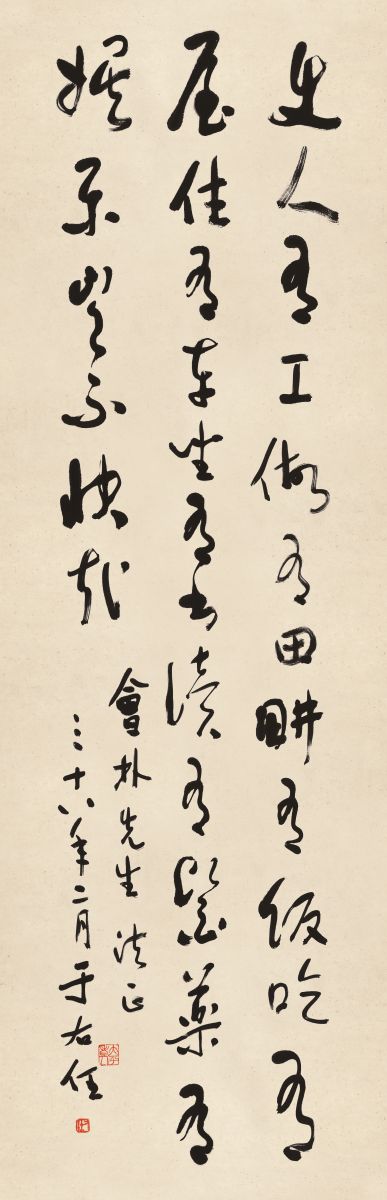 使人有工做有田畊有飯吃有
屋住有車坐有書讀有醫藥有
娛樂豈不快哉
會朴先生法正
三十八年二月于右任